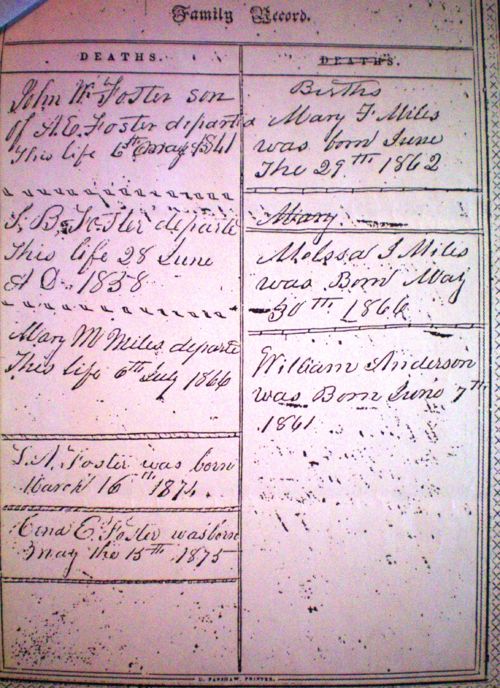 Family Record.
DEATHS.
John W. Foster son
of A. E. Foster departed
This life 6th May 1841
B. Foster departe
This life 28 June
A D. 1838
Mary M Miles departe
This life 6th July 1866
Foster was born
March 16th 1874.
E. Foster was born
May the 15th 1875
DEATHS.
Births
Mary F Miles
was born June
The 29th 1862
Mary
Melssa J Miles
was Born May
30th 1866
William Anderson
was Born June 7th
1861
D. FANSHAW, PRINTER.